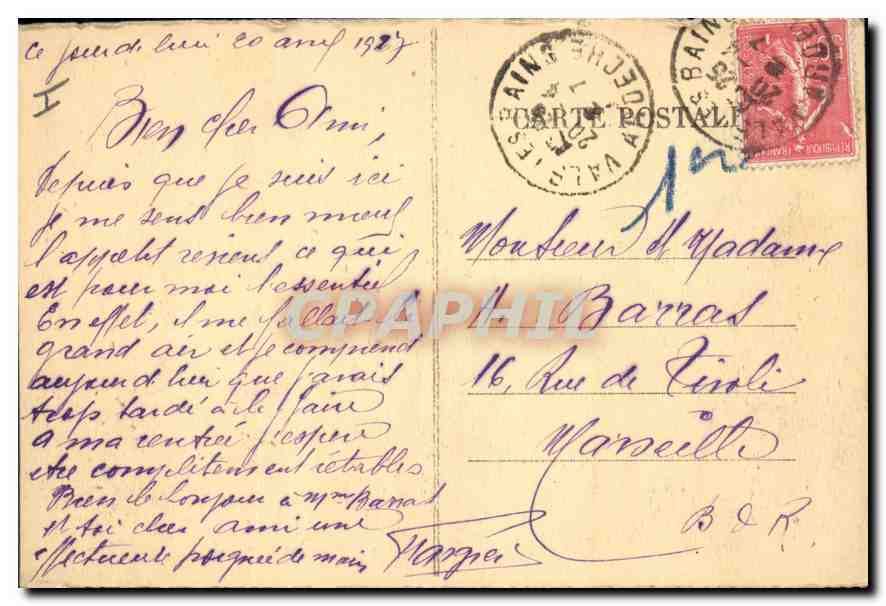 ce jourd'hui 20 avril 1927
H
Bien cher Ami,
Depuis que je suis ici
je me sens bien mieux
l'appetit revient ce qui
est pour moi l'essentiel
En effet, il me fallait le
grand air et je comprend
aujourd'hui que j'avais
trop tardé à le faire
a ma rentrée j'espere
être completement rétablis
Bien le bonjour à Mme Barras
et toi cher ami une
affectueuse poignée de main
CARTE POSTALE
VALS LES BAINS ARDECHE
REPUBLIQUE FRANCAISE
Monsieur et Madame
A. Barras
16, Rue de Tivoli
Marseille
B d R.
CPAPHIL